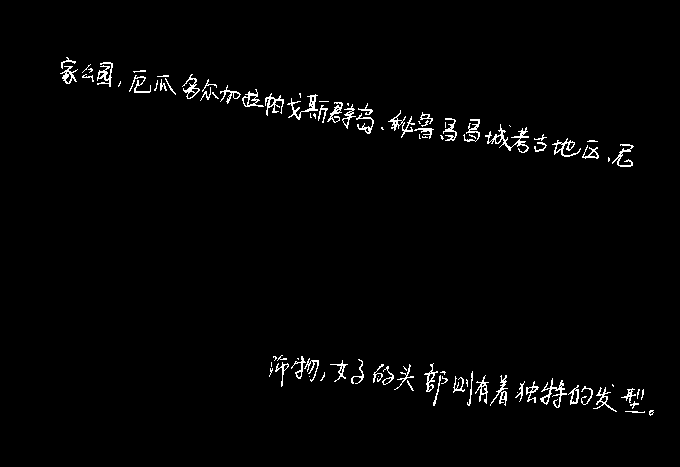 家公园,厄瓜多尔加拉帕戈斯群岛、秘鲁昌昌城考古地区、尼
饰物,女子的头部则有着独特的发型。